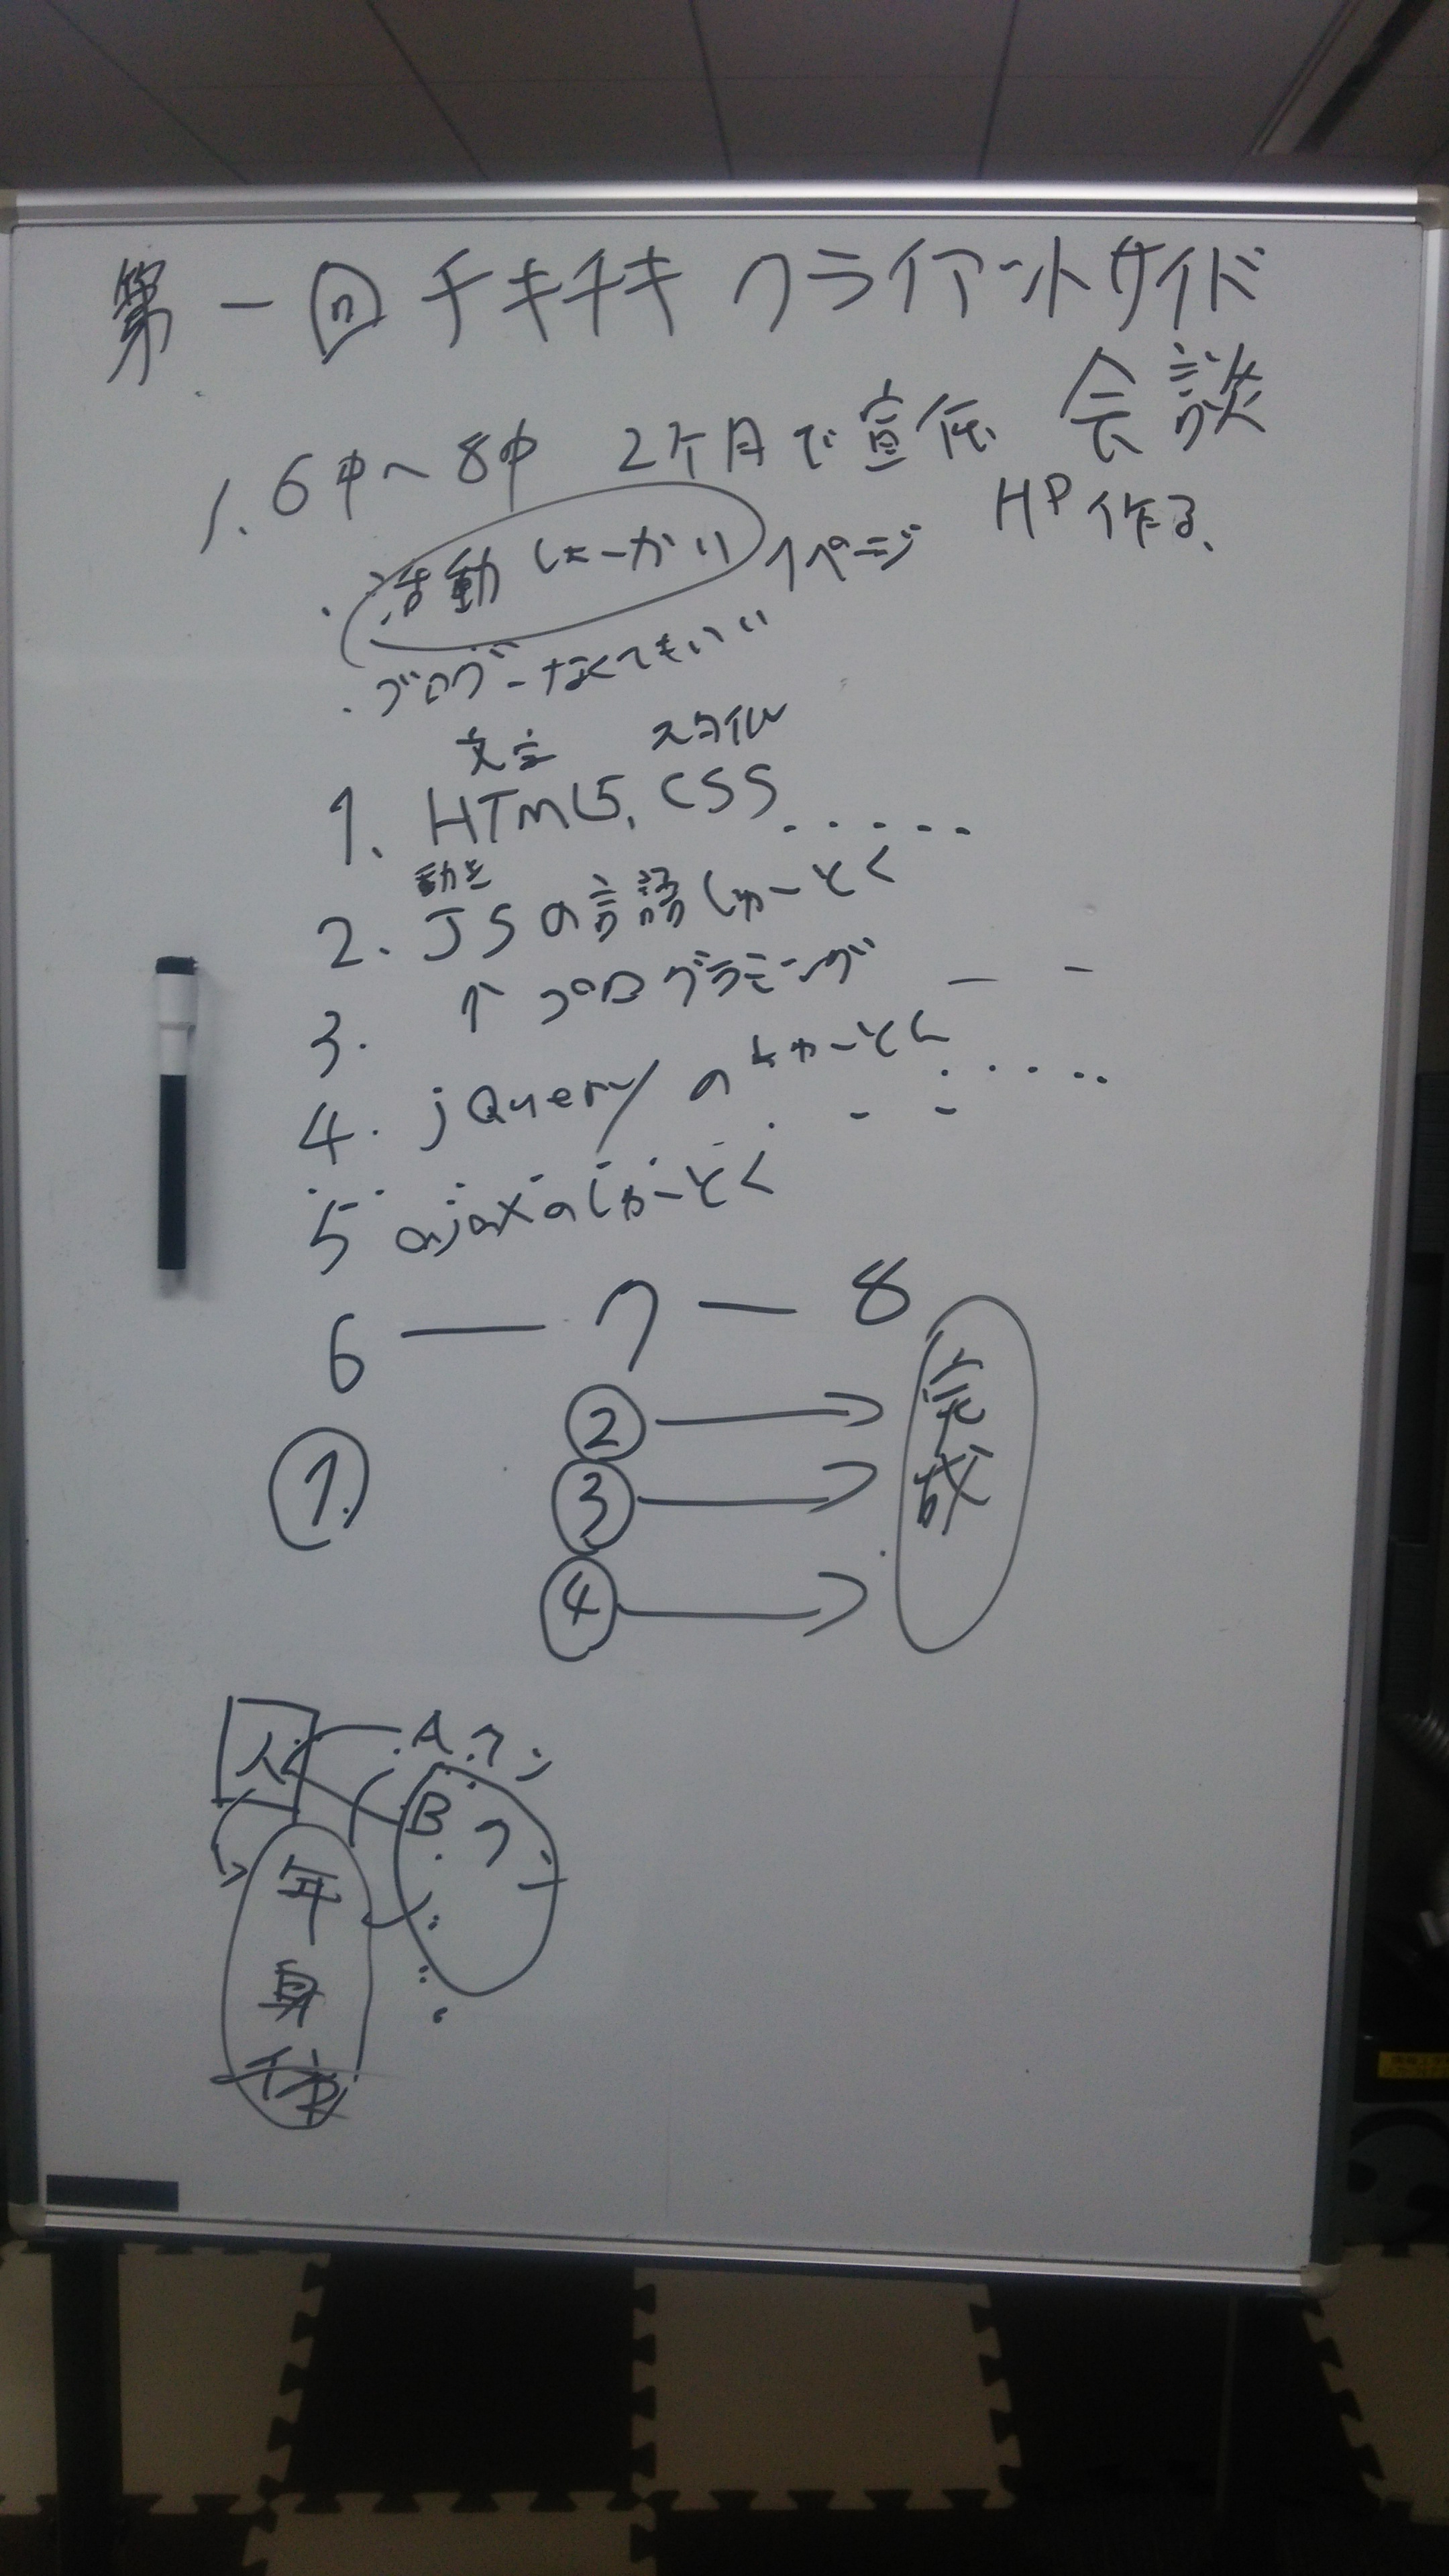 第一回チキチキ クライアントサイド
会談
1. 6中~8中 2ヶ月で宣伝
HP作る、
・活動しょーかい 1ページ
・ブログ-なくてもいい
文字 スタイル
1. HTML5, CSS.....
動き
2. JSの言語しゅーとく
3. ↑プログラミング - -
4. jQueryのしゅーとく
5 ajaxのしゅーとく
6 — 7 — 8
① ② → 完成
③ →
④ →
人 A.クン
B クン
年
身